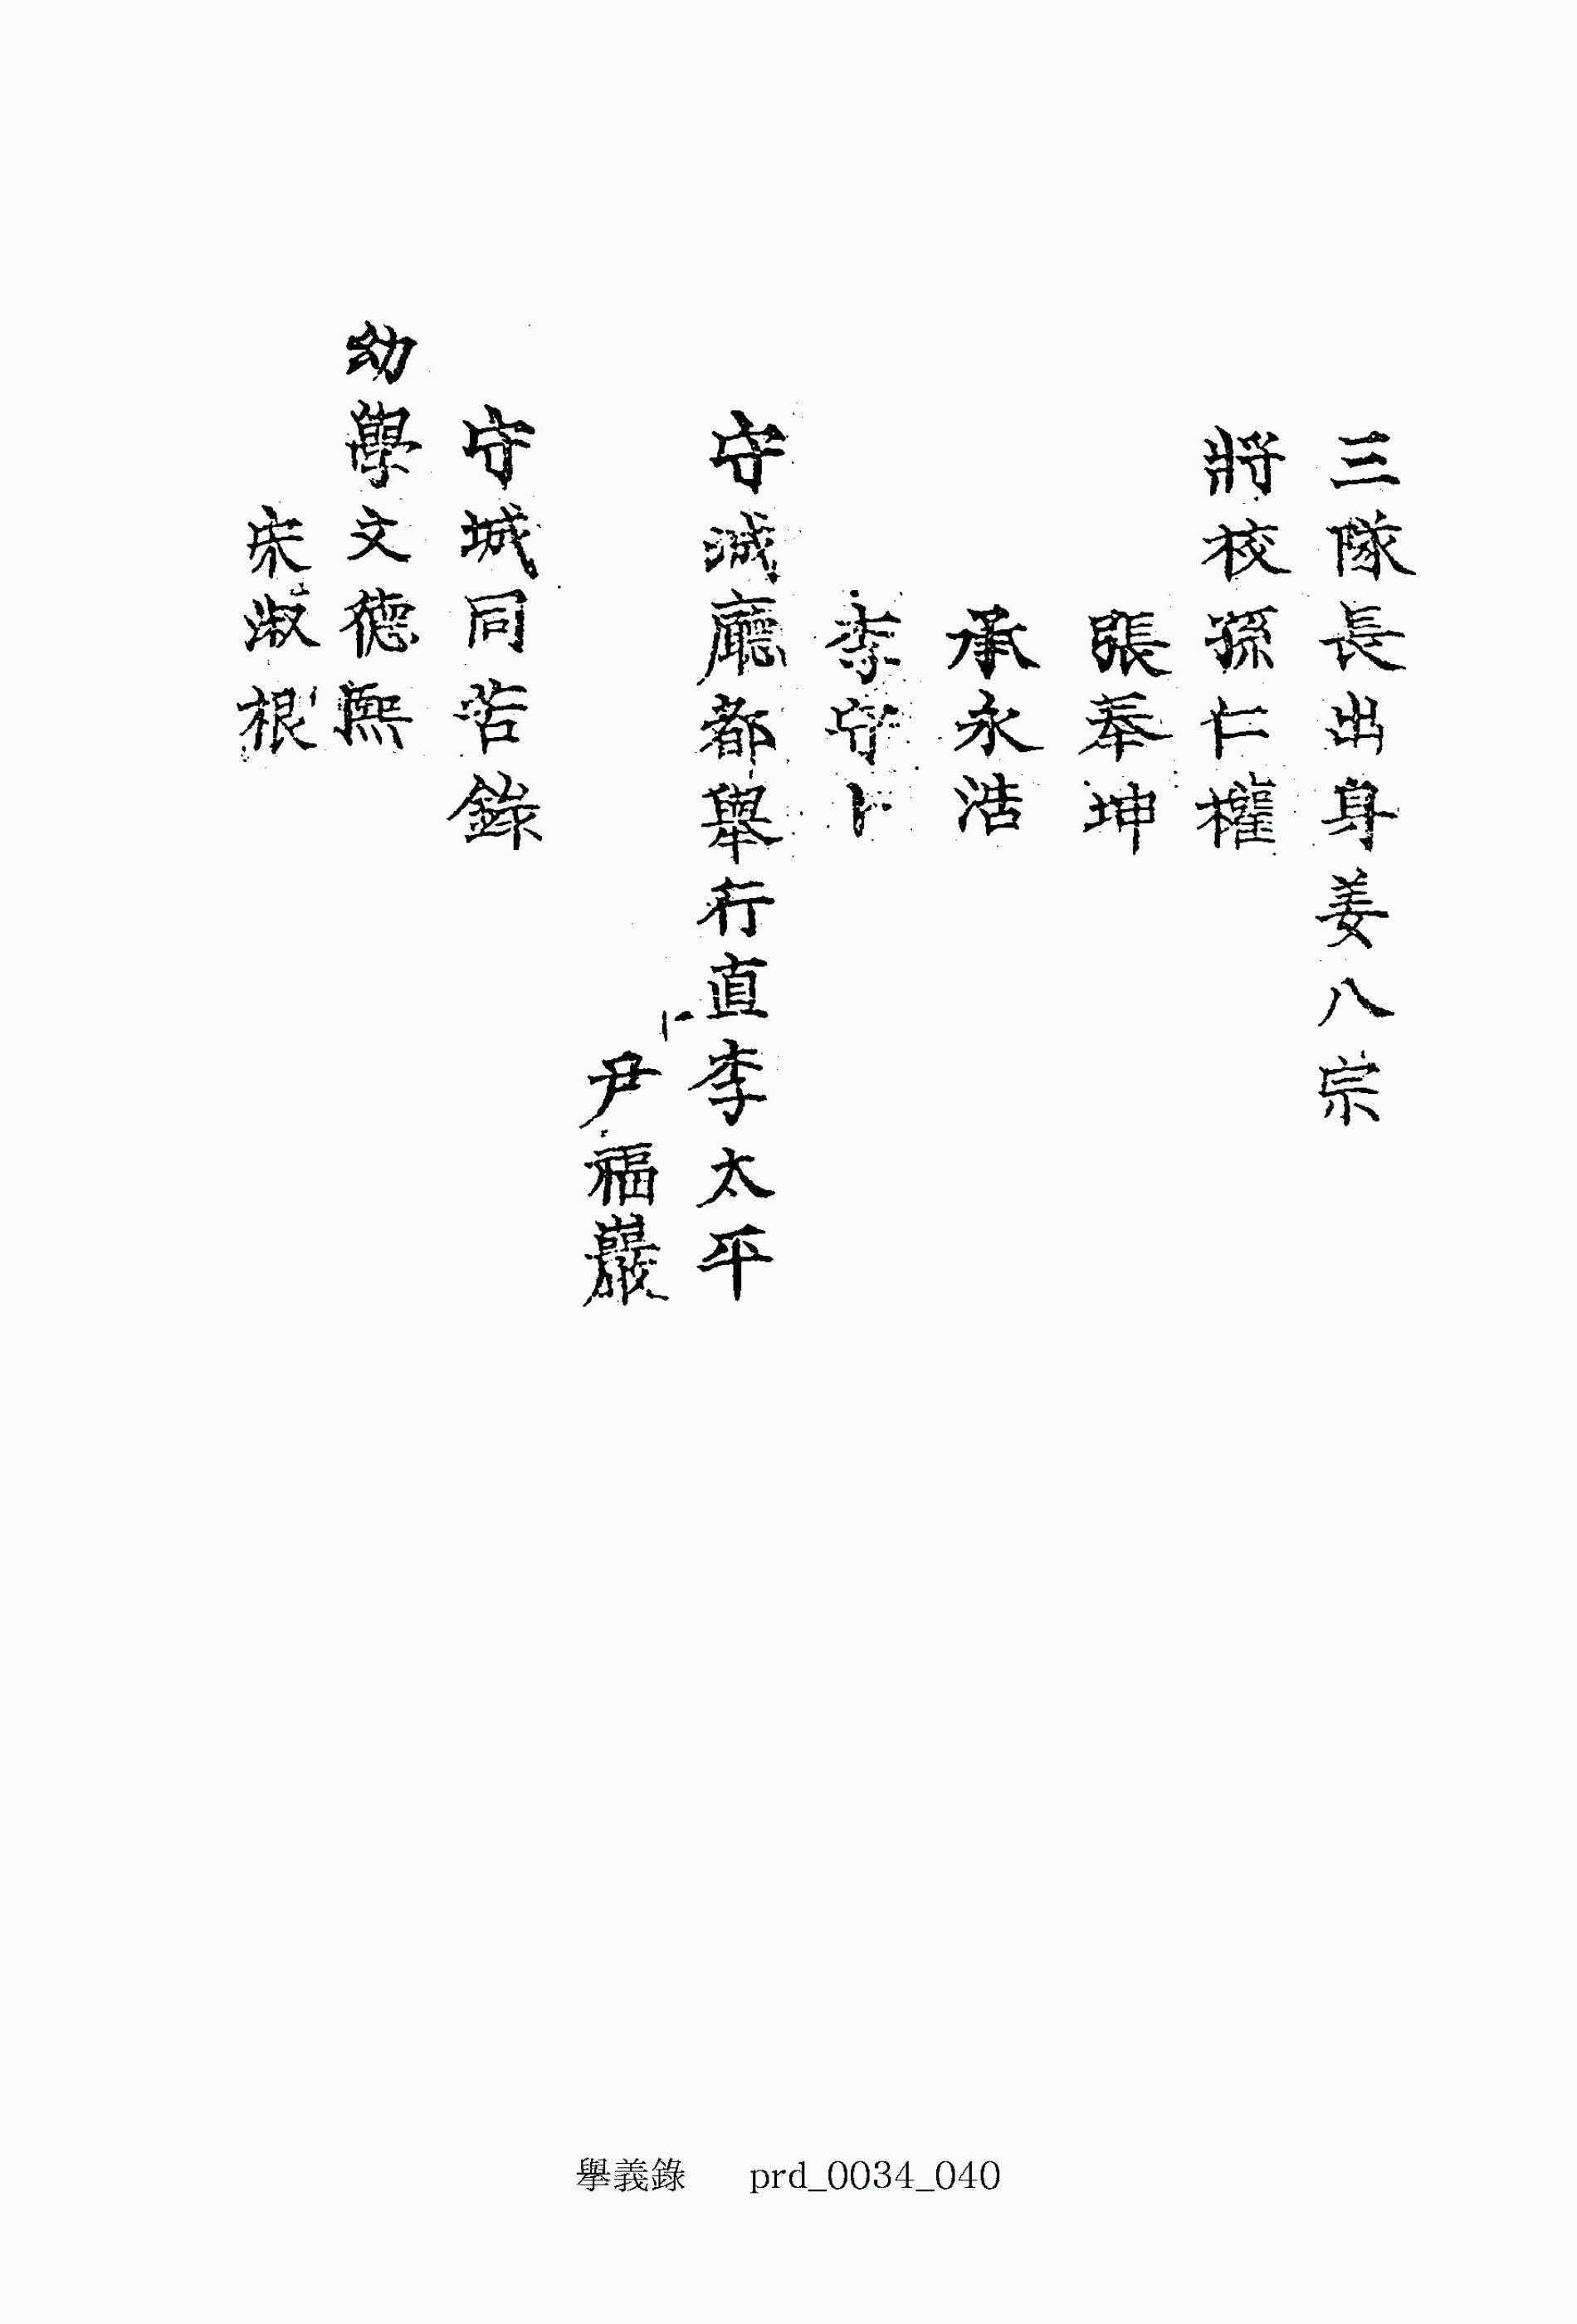 三隊長出身姜八宗
將校孫仁權
張奉坤
承永浩
李守卜
守城廳都擧行直李太平
尹福巖
守城同苦錄
幼學文德熙
宋淑根
擧義錄 prd_0034_040